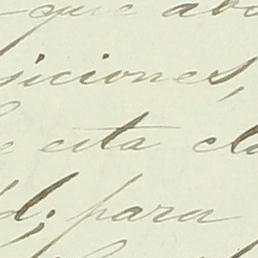 que
siciones,
e esta cla
d; para